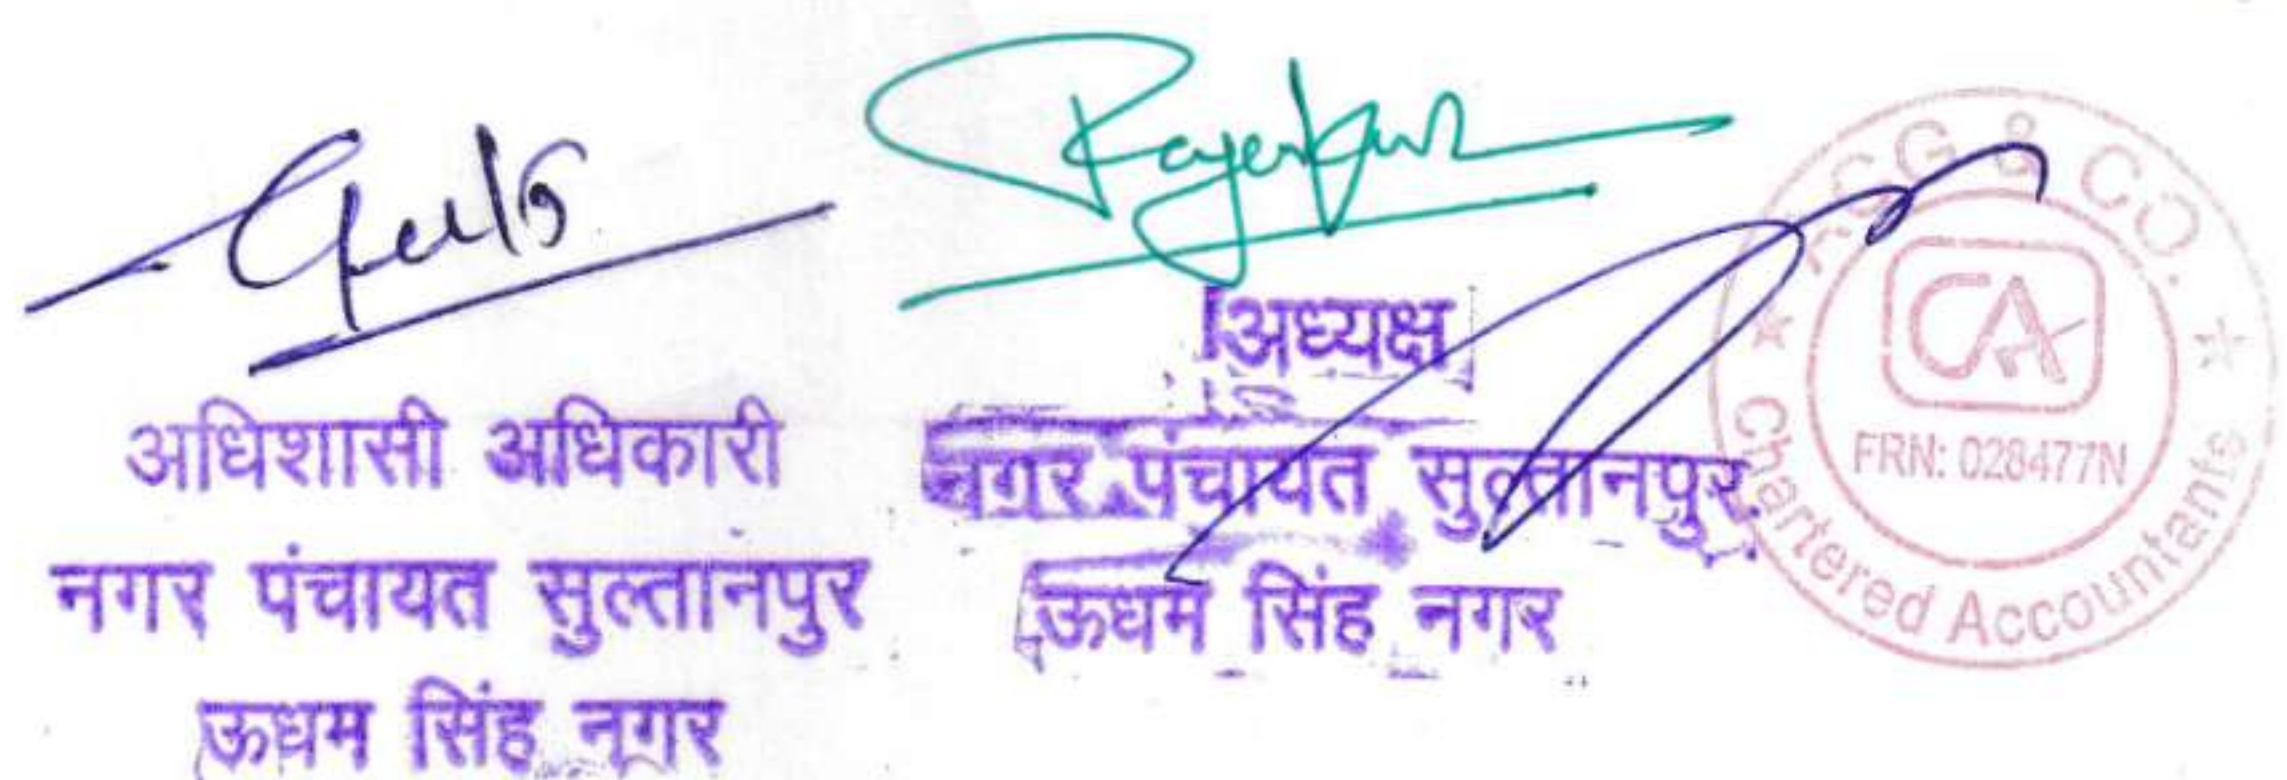 अधिशासी अधिकारी
नगर पंचायत सुल्तानपुर
ऊधम सिंह नगर
अध्यक्ष
नगर पंचायत सुल्तानपुर
ऊधम सिंह नगर
CG & CO.
CA
FRN: 028477N
Chartered Accountants